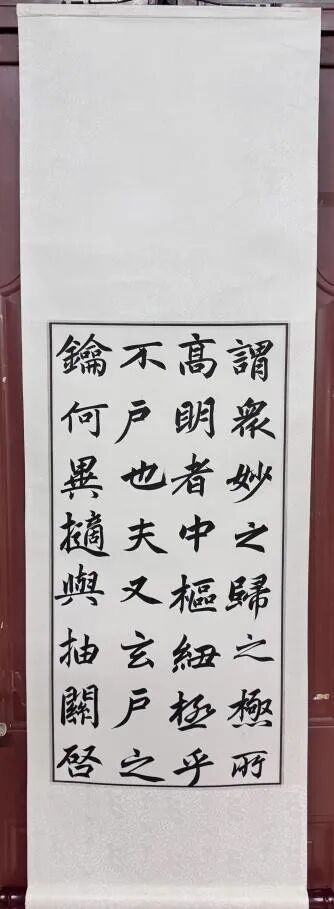 謂衆妙之歸之極所
高明者中樞紐極乎
不戸也夫又玄戸之
鑰何異擿與抽關啓